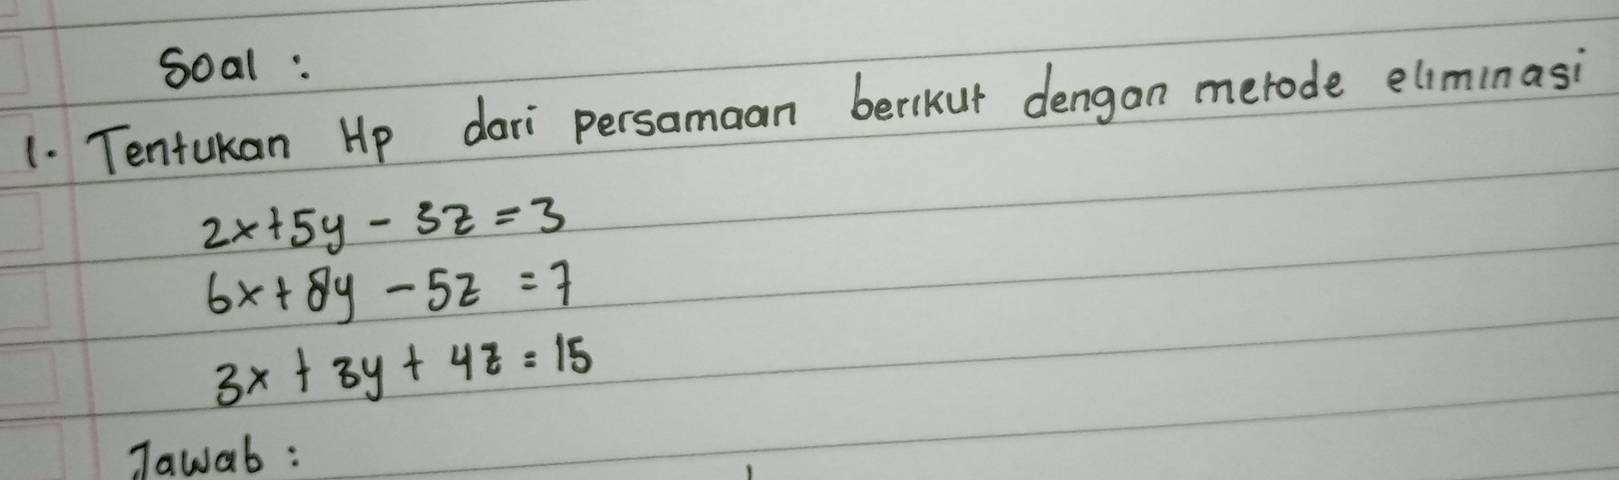 Soal :
1. Tentukan Hp dari persamaan berikut dengan metode eliminasi
2x+5y - 3z = 3
6x + 8y - 5z = 7
3x + 3y + 4z = 15
Jawab :